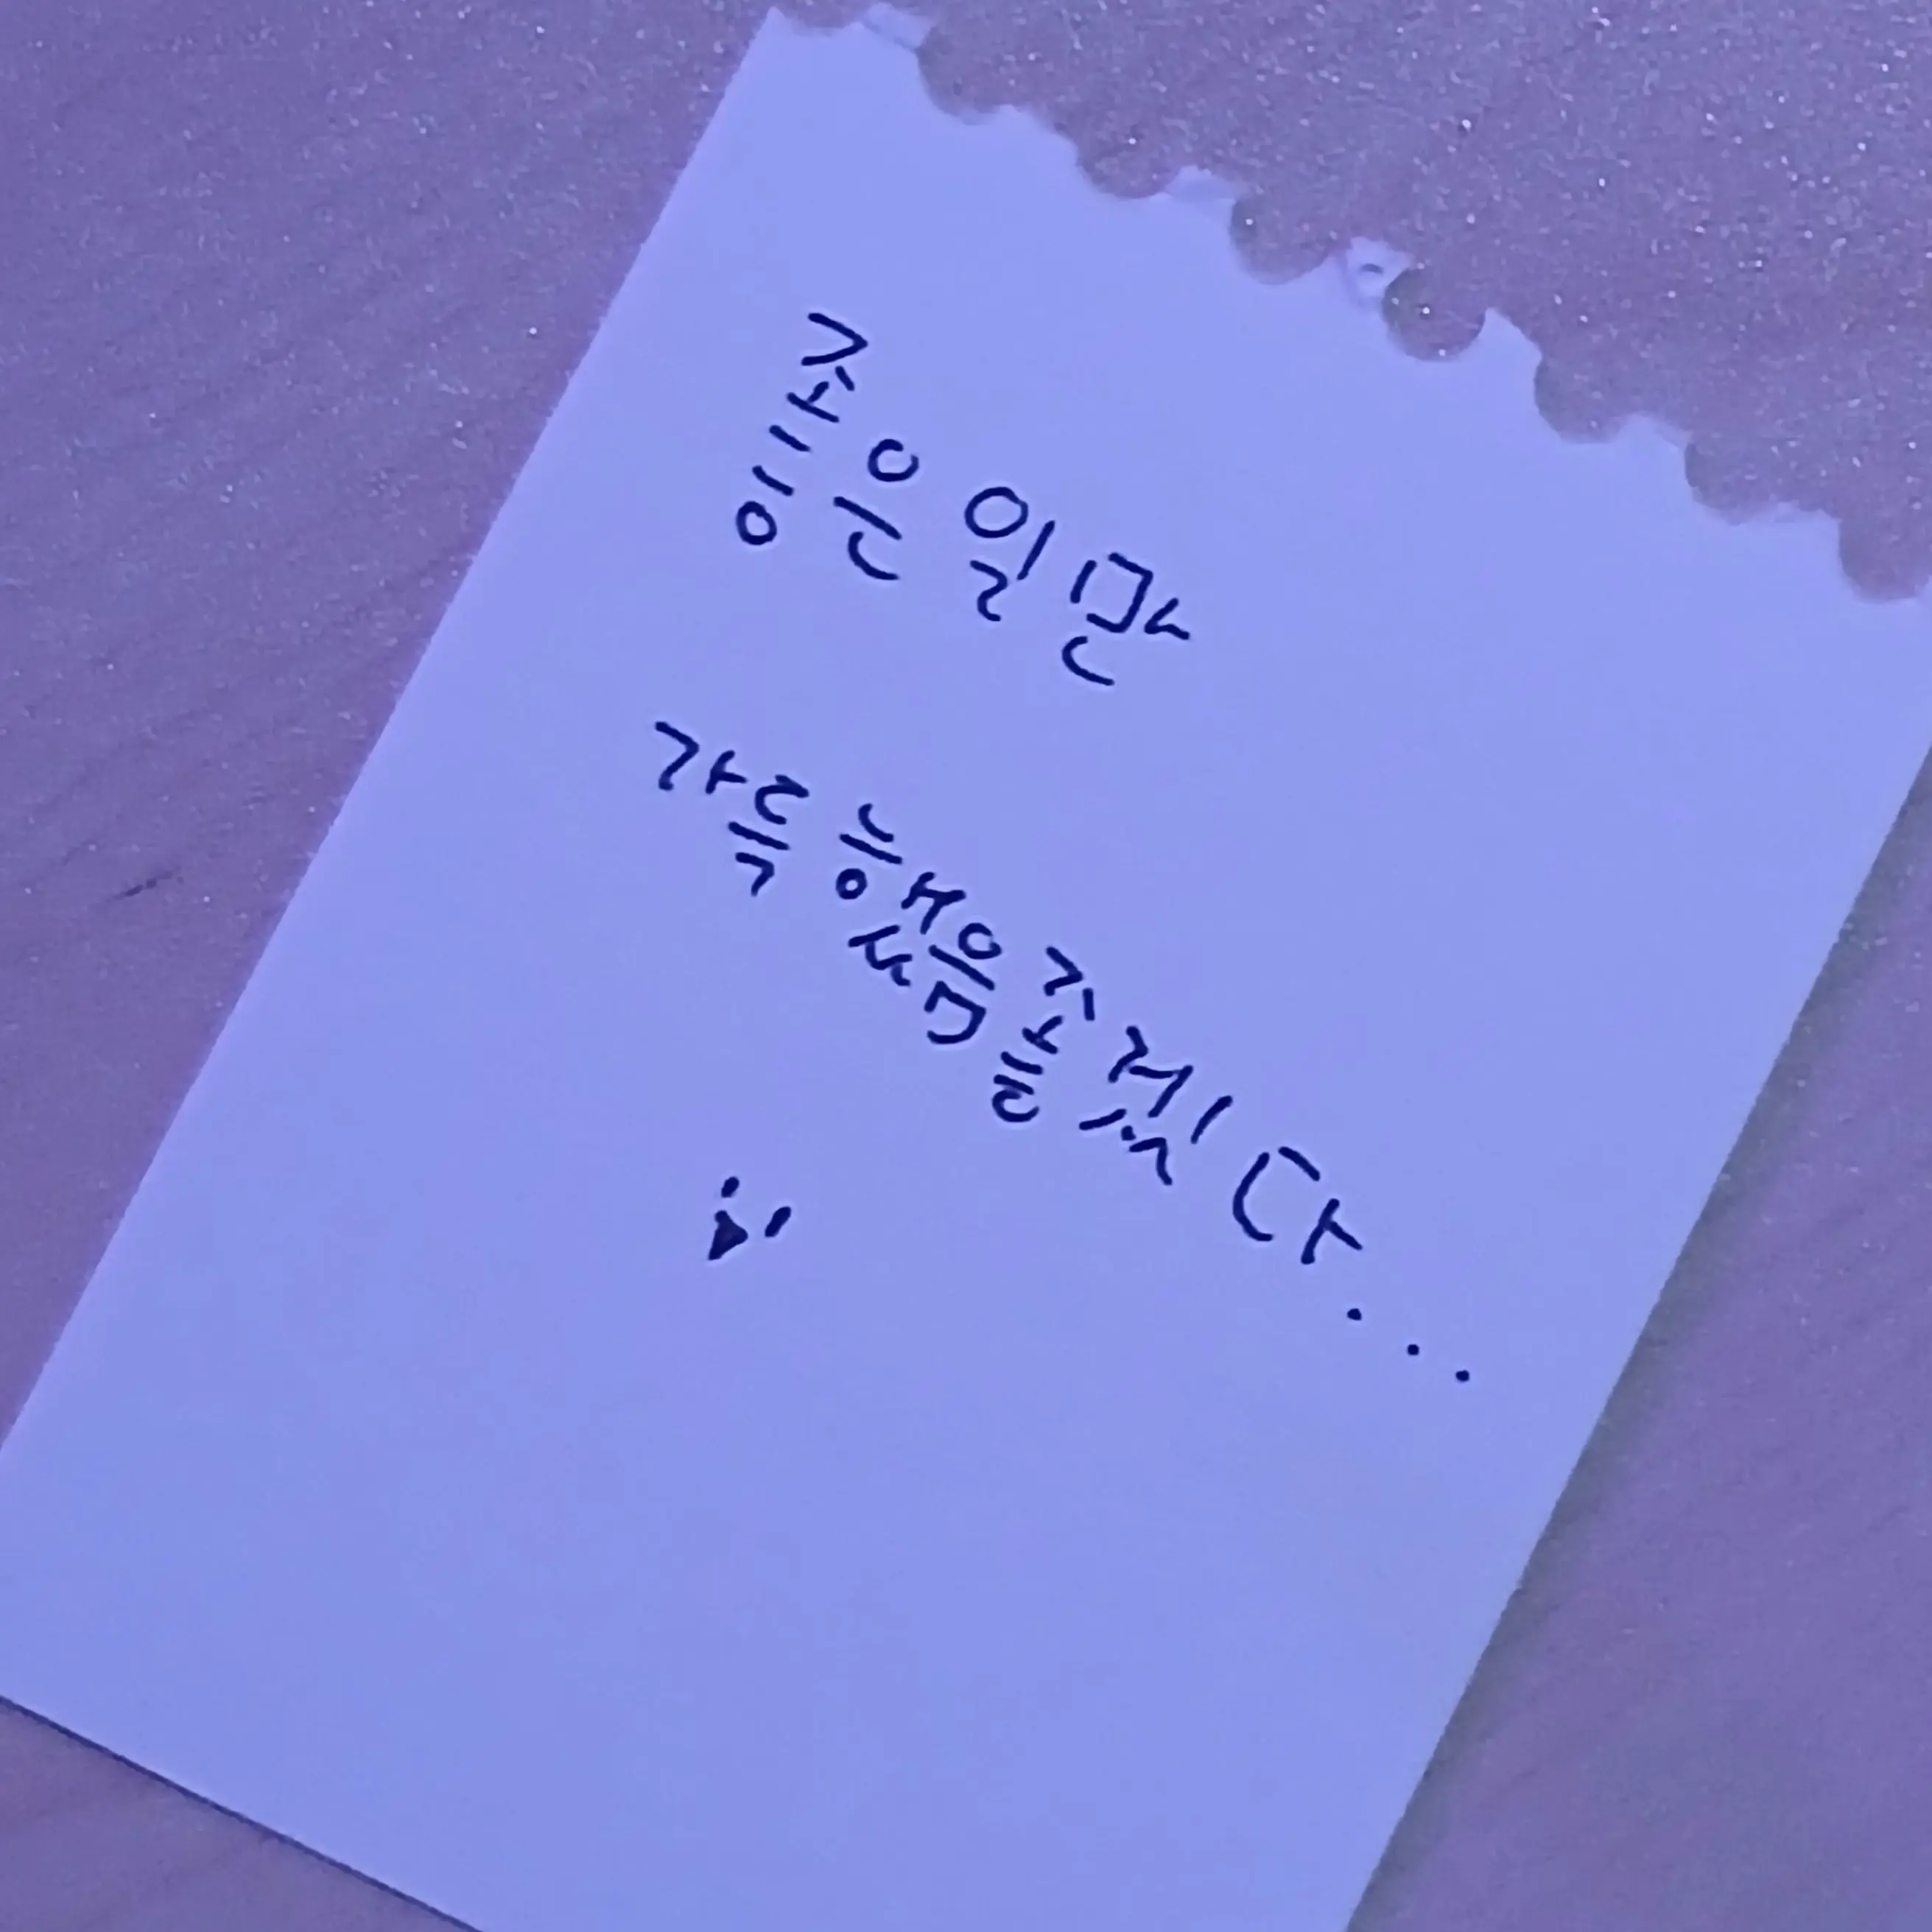 좋은 일만
가득 했음 좋겠다...